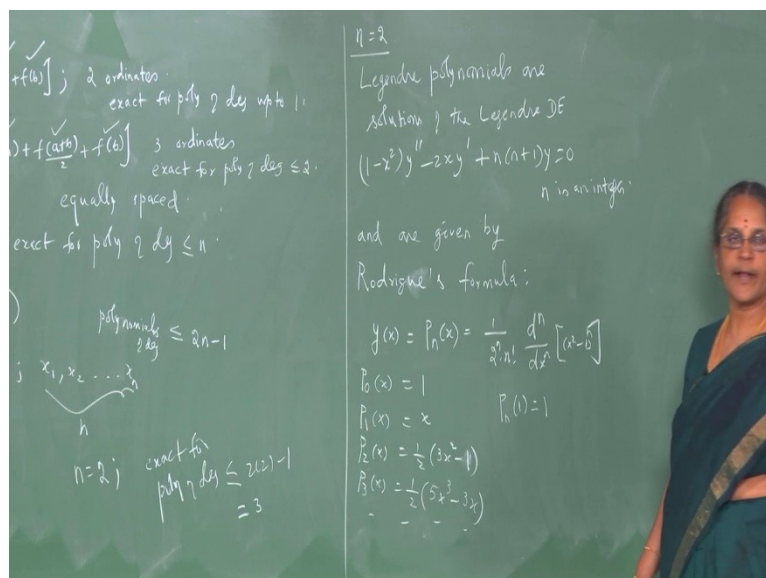 +f(b)] ; 2 ordinates.
exact for poly of deg upto 1.
) + f(a+b)/2 + f(b)] 3 ordinates
exact for poly of deg ≤ 2.
equally spaced.
exact for poly of deg ≤ n.
)
polynomials of deg ≤ 2n-1
; x₁, x₂ ... xₙ
n
n=2 ; exact for
poly of deg ≤ 2(2)-1
= 3
n=2
Legendre polynomials are
solutions of the Legendre DE
(1-x²)y'' - 2xy' + n(n+1)y = 0
n is an integer.
and are given by
Rodrigue's formula:
y(x) = Pₙ(x) = 1/(2ⁿ n!) dⁿ/dxⁿ [(x²-1)ⁿ]
P₀(x) = 1
P₁(x) = x Pₙ(1) = 1
P₂(x) = 1/2 (3x²-1)
P₃(x) = 1/2 (5x³-3x)
- - - -